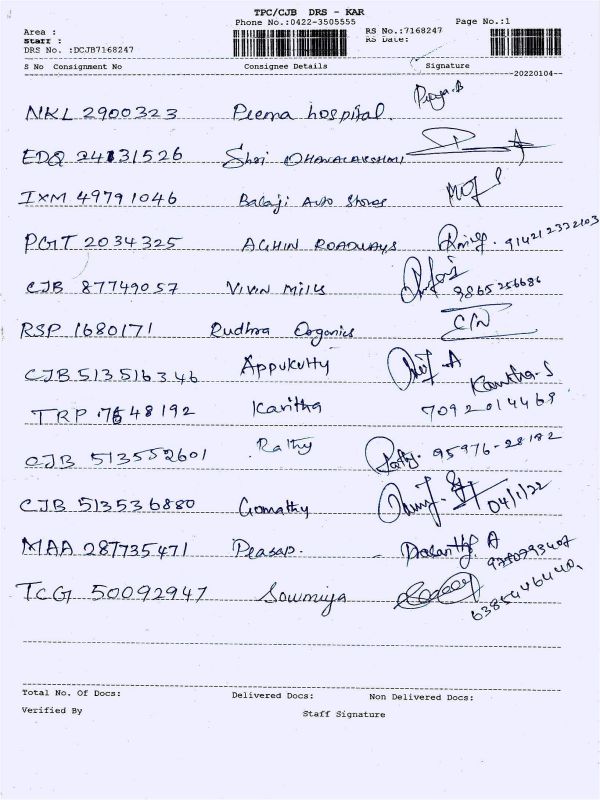 TPC/CJB DRS - KAR
Phone No.:0422-3505555 Page No.:1
Area : RS No.:7168247
Staff : RS Date:
DRS No. :DCJB7168247
S No Consignment No Consignee Details Signature
--20220104--
NKL 2900323 Peema hospital. Priya.B
EDQ 24131526 Shri DHANALAKSHMI
IXM 49791046 Balaji Auto Stores
PGT 2034325 ACHIN ROADWAYS 919212332103
CJB 87749057 VIVIN Mills 9865256686
RSP 1680171 Rudhra Organics
CJB 513516346 Appukutty
TRP 7648192 Kavitha Kavitha.S 7092014468
CJB 513552601 Rathy 95976-28182
CJB 513536880 Gomathy 04/1/22
MAA 287735471 Peasas. Prasanth. A
TCG 50092947 Sowmiya 6385446440
Total No. Of Docs: Delivered Docs: Non Delivered Docs:
Verified By Staff Signature